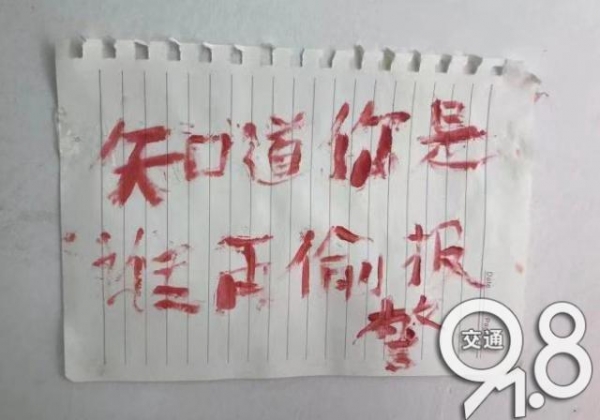 知道你是
谁再偷报
警
交通
91.8